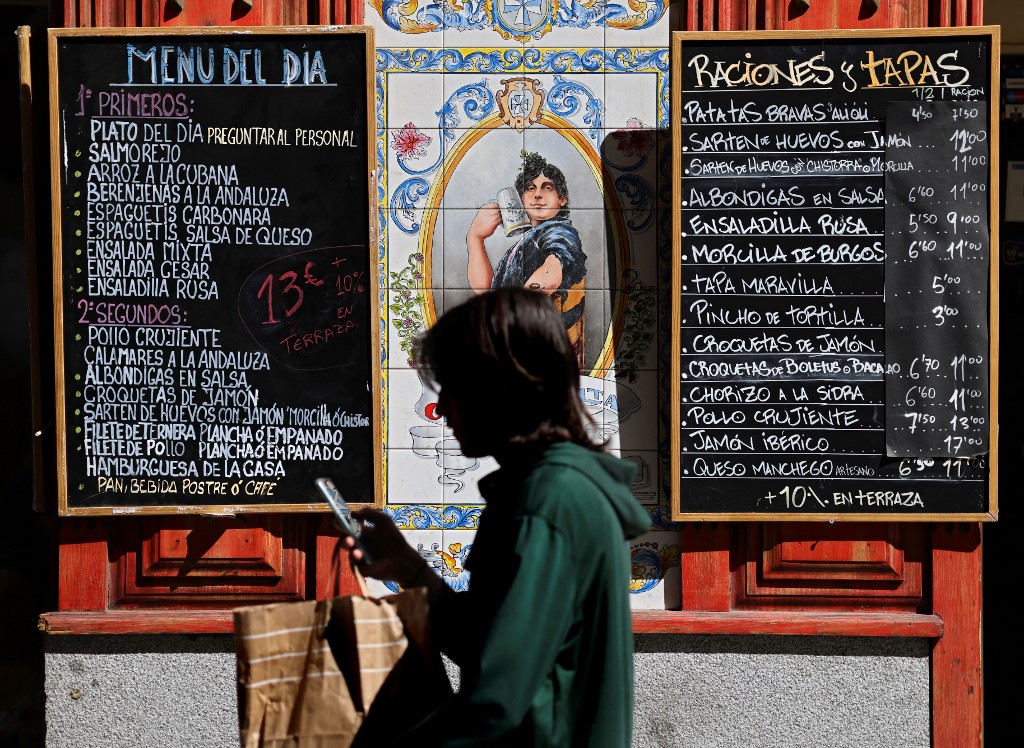 MENU DEL DÍA
1º PRIMEROS:
PLATO DEL DÍA PREGUNTAR AL PERSONAL
SALMOREJO
ARROZ A LA CUBANA
BERENJENAS A LA ANDALUZA
ESPAGUETIS CARBONARA
ESPAGUETIS SALSA DE QUESO
ENSALADA MIXTA
ENSALADA CESAR
ENSALADILLA ROSA
2º SEGUNDOS:
POLLO CRUJIENTE
CALAMARES A LA ANDALUZA
ALBONDIGAS EN SALSA
CROQUETAS DE JAMON
SARTEN DE HUEVOS CON JAMÓN MORCILLA Ó CHISTOR
FILETE DE TERNERA PLANCHA Ó EMPANADO
FILETE DE POLLO PLANCHA Ó EMPANADO
HAMBURGUESA DE LA CASA
PAN, BEBIDA POSTRE Ó CAFÉ
13€ + 10%
EN
TERRAZA
RACIONES y TAPAS
1/2 RACION
PATATAS BRAVAS Ó ALIOLI 4'50 7'50
SARTEN DE HUEVOS CON JAMÓN 12'00
SARTEN DE HUEVOS CON CHISTORRA O MORCILLA 11'00
ALBONDIGAS EN SALSA 6'60 11'00
ENSALADILLA RUSA 5'50 9'00
MORCILLA DE BURGOS 6'60 11'00
TAPA MARAVILLA 5'00
PINCHO DE TORTILLA 3'00
CROQUETAS DE JAMÓN
CROQUETAS DE BOLETUS O BACALAO 6'70 11'00
CHORIZO A LA SIDRA 6'60 11'00
POLLO CRUJIENTE 7'50 13'00
JAMÓN IBÉRICO 17'00
QUESO MANCHEGO ARTESANO 6'50 11'00
+10% EN TERRAZA